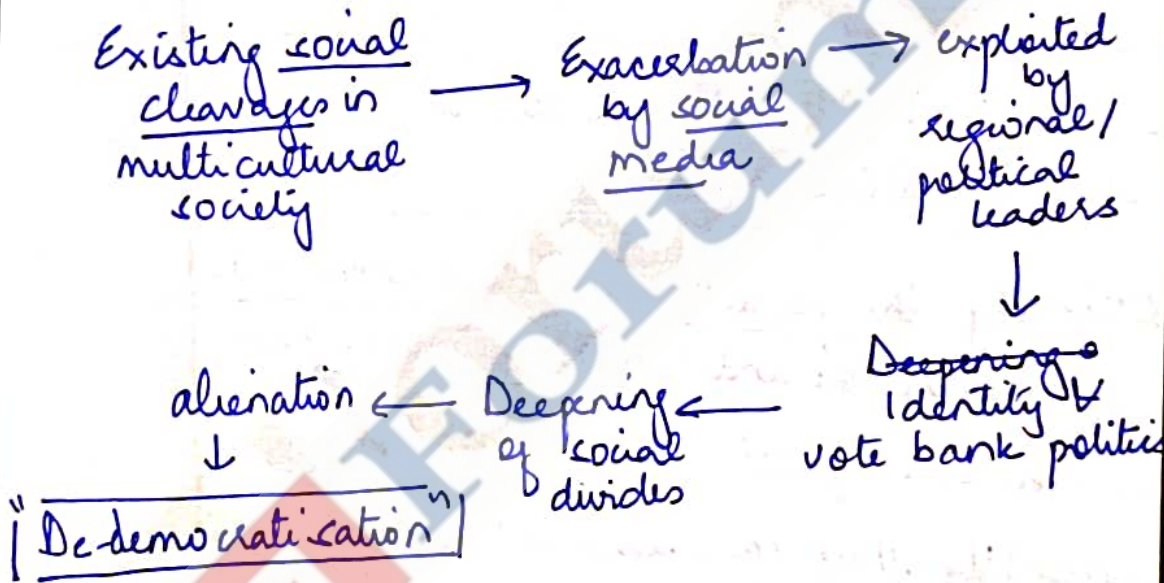 Existing social
cleavages in
multicultural
society
→ Exacerbation
by social
media
→ exploited
by
regional/
political
leaders
↓
Deepening o
Identity &
vote bank politics
← Deepening
of social
divides
← alienation
↓
"De-democratisation"
Forum